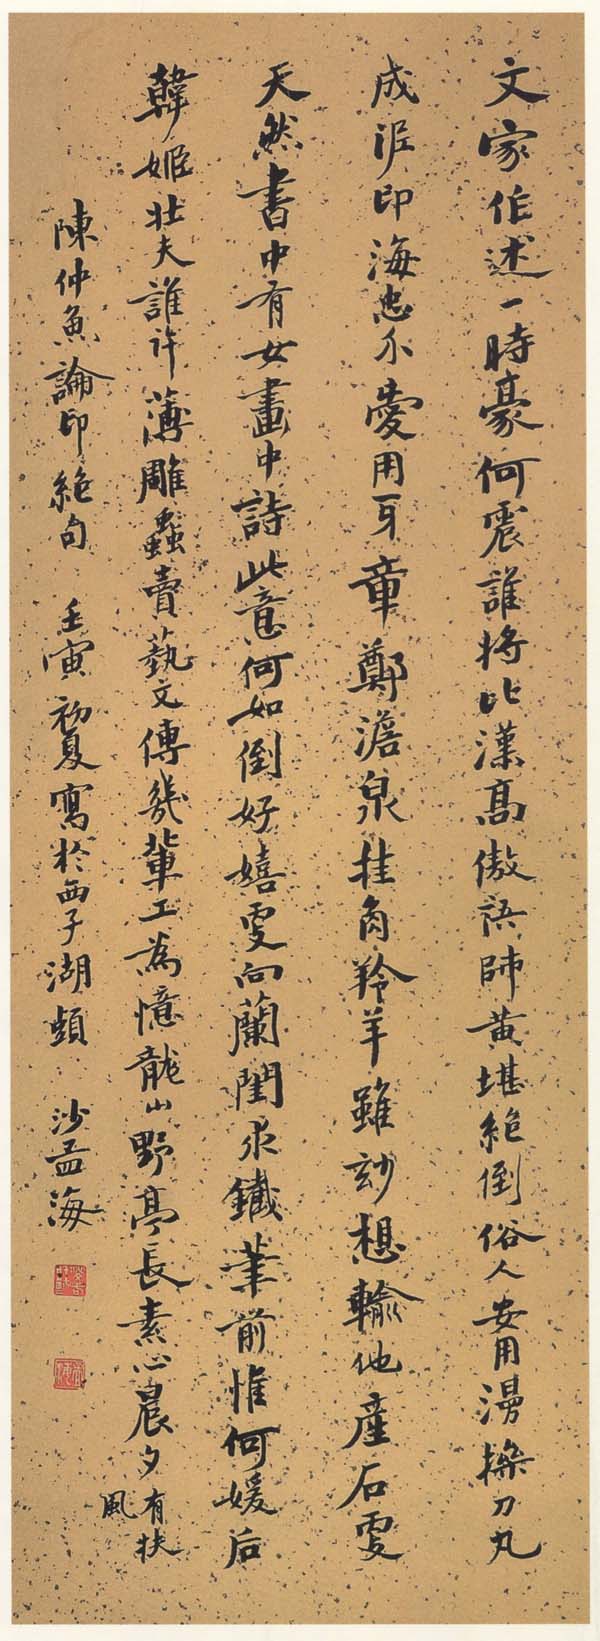 文家作述一時豪何震誰將比漢高傲語師黃堪絕倒俗人安用漫操刀丸
成泥印海忠介愛用瓦章鄭澹泉挂角羚羊雖玅想輸他產石雯
天然書中有女畫中詩此意何如倒好嬉雯向蘭閨求鐵筆前惟何媛后
韓姬壯夫誰許薄雕蟲賣藝文傳幾輩工為憶龍山野亭長素心晨夕有扶
風
陳仲魚論印絕句 壬寅初夏寫於西子湖頭 沙孟海